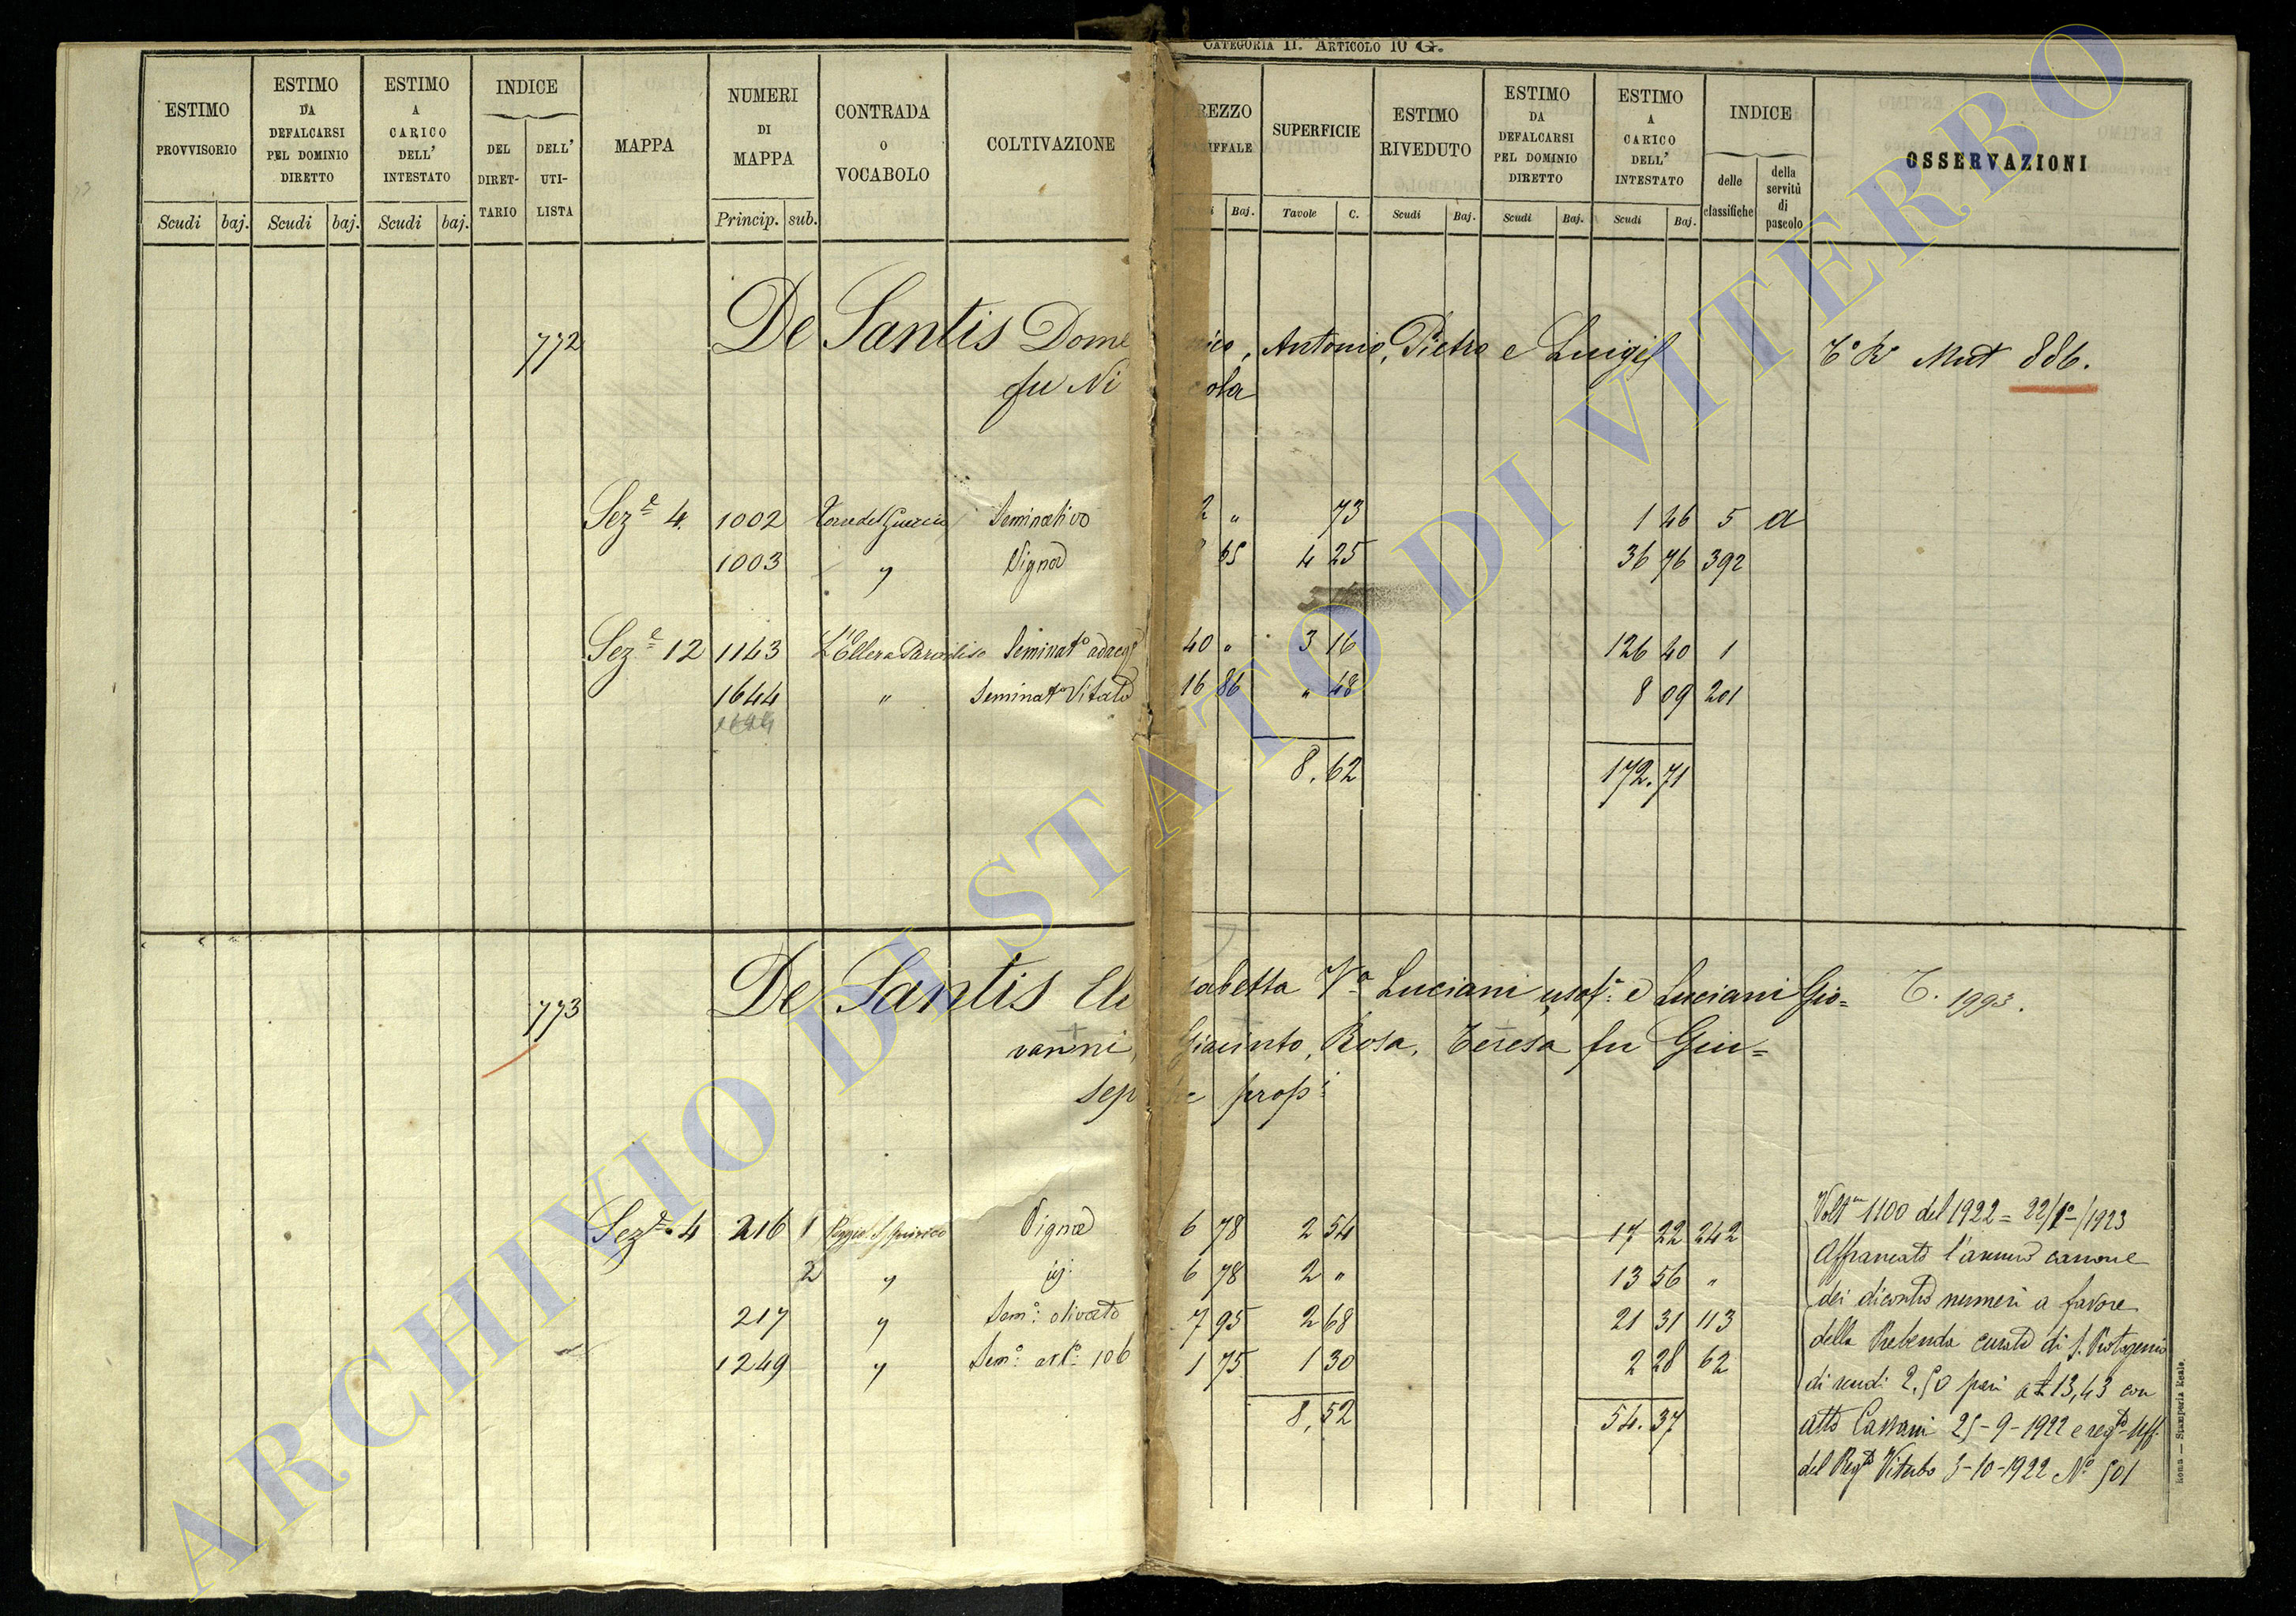 CATEGORIA II. ARTICOLO 10 G.
ESTIMO PROVVISORIO | ESTIMO DA DEFALCARSI PEL DOMINIO DIRETTO | ESTIMO A CARICO DELL' INTESTATO | INDICE | MAPPA | NUMERI DI MAPPA | CONTRADA O VOCABOLO | COLTIVAZIONE | SUPERFICIE | ESTIMO RIVEDUTO | ESTIMO DA DEFALCARSI PEL DOMINIO DIRETTO | ESTIMO A CARICO DELL' INTESTATO | INDICE | OSSERVAZIONI
DEL DIRETTARIO | DELL' UTILISTA | delle classifiche | della servitù di pascolo
Scudi | baj. | Scudi | baj. | Scudi | baj. | Princip. | sub. | Baj. | Tavole | C. | Scudi | Baj. | Scudi | Baj. | Scudi | Baj.
772 De Santis Domenico, Antonio, Pietro e Luigi Mut 886.
fu Nicola
Seze 4. 1002 Seminativo 2 " 73 1 46 5 a
1003 " Vigna 65 4 25 36 76 392
Seze 12 1143 L'Ellera Paradiso Seminato adacq 40 " 3 16 126 40 1
1644 " Seminato Vitato 16 86 " 48 8 09 201
8.62 172.71
773 De Santis Elisabetta Va Luciani usof. e Luciani Gio= T. 1993.
vanni, Giacinto, Rosa, Teresa fu Giu=
seppe prop.i
Seze 4 216 1 Poggio S. Quirico Vigna 6 78 2 54 17 22 242
2 " id. 6 78 2 " 13 56 "
217 " Sem.o olivato 7 95 2 68 21 31 113
1249 " Sem.o 106 1 75 1 30 2 28 62
8,52 54.37
1100 del 1922 = 22/1/1923
Affrancato l'annuo canone
dei dicontro numeri a favore
della Prebenda curata di S.
di scudi 2.50 pari a £ 13,43 con
atto Cassani 25-9-1922 e regto Uff.
del Regto Viterbo 3-10-1922 No 501
Roma — Stamperia Reale.
ARCHIVIO DI STATO DI VITERBO